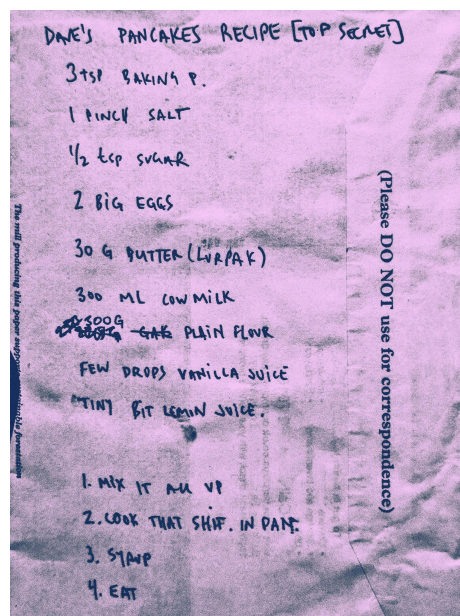 DAVE'S PANCAKES RECIPE [TOP SECRET]
3 tsp BAKING P.
1 PINCH SALT
1/2 tsp SUGAR
2 BIG EGGS
30 G BUTTER (LURPAK)
300 ML COW MILK
300G PLAIN FLOUR
FEW DROPS VANILLA JUICE
TINY BIT LEMIN JUICE.
1. MIX IT ALL UP
2. COOK THAT SHIT. IN PAN.
3. SYRUP
4. EAT
(Please DO NOT use for correspondence)
The mill producing this paper